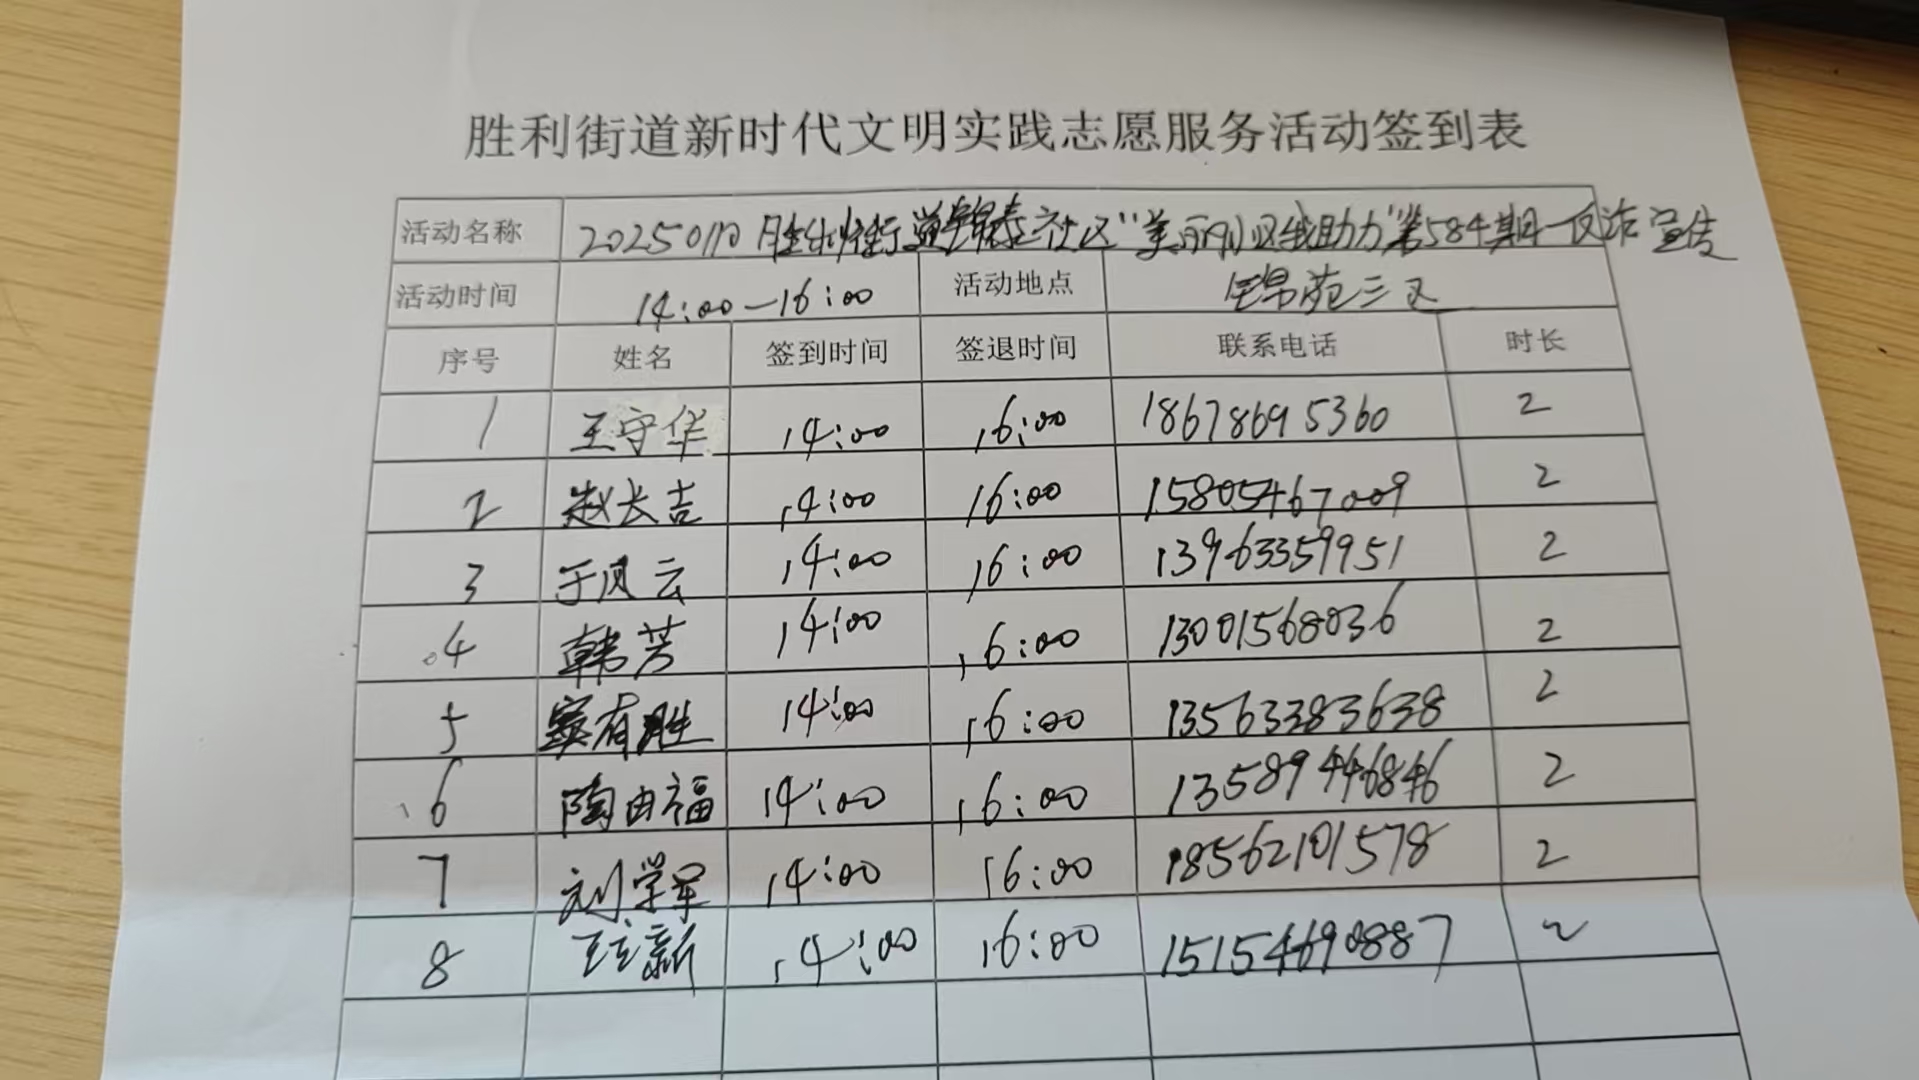 胜利街道新时代文明实践志愿服务活动签到表
活动名称 20250110 胜利街道锦泰社区"美丽小区我助力"第584期—反诈宣传
活动时间 14:00—16:00 活动地点 锦苑三区
序号 姓名 签到时间 签退时间 联系电话 时长
1 王守华 14:00 16:00 18678695360 2
2 赵长吉 14:00 16:00 15805467009 2
3 于凤云 14:00 16:00 13963359951 2
4 韩芳 14:00 16:00 13001568036 2
5 有胜 14:00 16:00 13563383638 2
6 陶由福 14:00 16:00 13589446846 2
7 刘学军 14:00 16:00 18562101578 2
8 新 14:00 16:00 15154690887 2